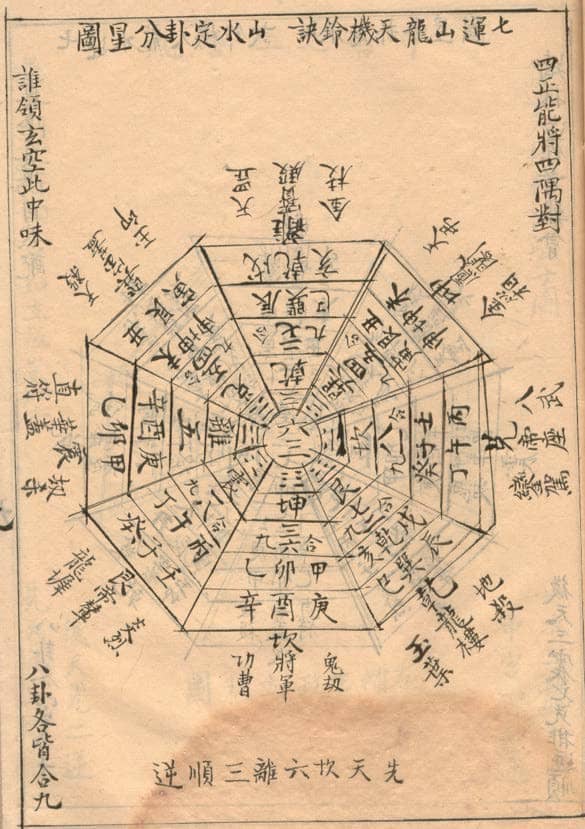 七運山龍天機鈴訣 山水定卦分星圖
四正能將四隅對
誰領玄空此中味
八卦各皆合九
金枝
寶殿
天罡
離
戌乾亥
辰巽巳
乾
丑艮寅
未坤申
武八
帝座
鑾駕
兌
丙午丁
壬子癸
八合九
坎
地殺
龍樓
玉葉
乾
辰巽巳
戌乾亥
艮
坤
三六合九
甲卯乙
庚酉辛
坎
鬼劫
將軍
功曹
震
丙午丁
壬子癸
艮
帝輦
龍墀
離
庚酉辛
甲卯乙
震
華蓋
直符
未坤申
丑艮寅
先天坎六離三順逆